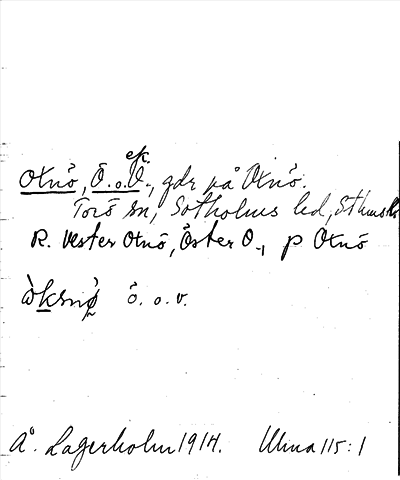 ek.
Oknö, Ö. o. V., gdr på Oknö.
Torö sn, Sotholms hd, Sthms l.
R. Vester Oknö, Öster O., p Oknö
ö. o. v.
Å. Lagerholm 1914. Ulma 115:1